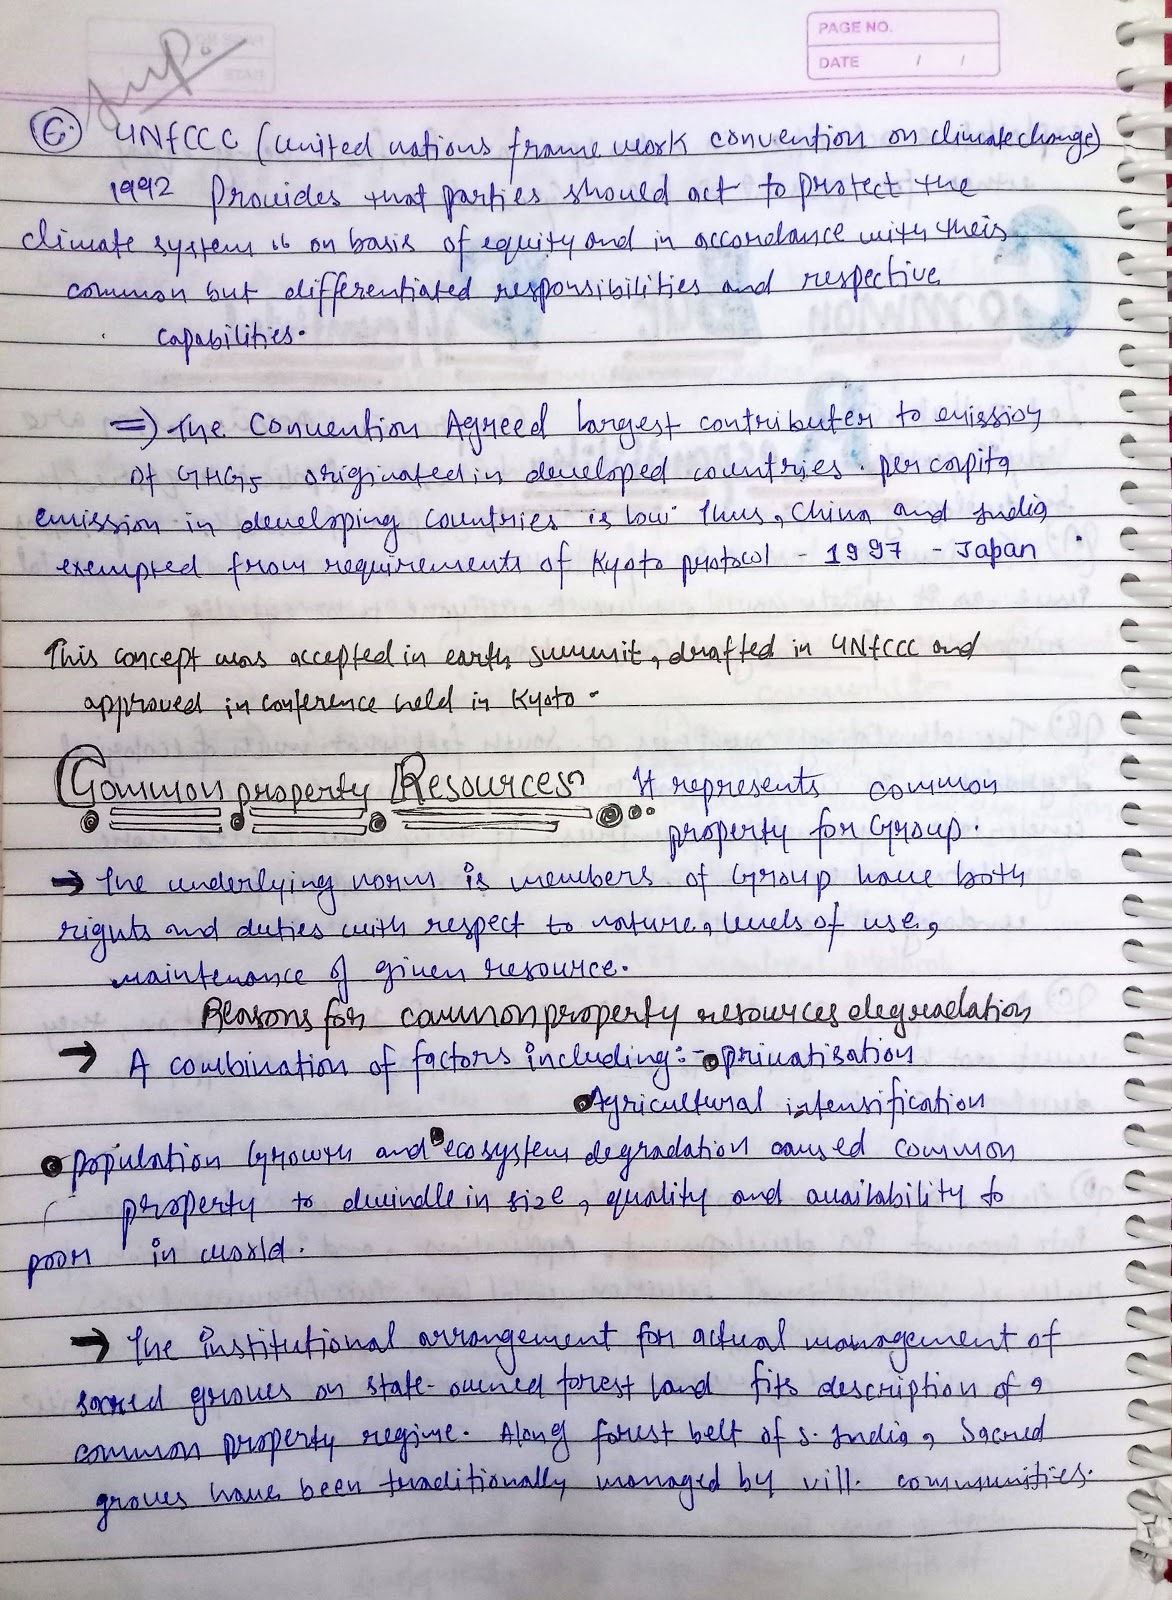 Imp.
PAGE NO.
DATE / /
E. UNFCCC (United nations frame work convention on climate change)
1992 Provides that parties should act to protect the
climate system is on basis of equity and in accordance with their
common but differentiated responsibilities and respective
capabilities.
⇒ The Convention Agreed largest contributer to emission
Of GHGs originated in developed countries. per capita
emission in developing countries is low. Thus, China and India
exempted from requirements of Kyoto protocol - 1997 - Japan
This concept was accepted in earth summit, drafted in UNFCCC and
approved in conference held in Kyoto.
Common property Resources It represents common
property for Group.
→ The underlying norm is members of Group have both
rights and duties with respect to nature, levels of use,
maintenance of given resource.
Reasons for common property resources degradation
→ A combination of factors including:- • privatisation
• Agricultural intensification
• population Growth and • ecosystem degradation caused common
property to dwindle in size, quality and availability to
poor in world.
→ The institutional arrangement for actual management of
sacred groves on state-owned forest land fits description of a
common property regime. Along forest belt of S. India, Sacred
groves have been traditionally managed by vill. communities.